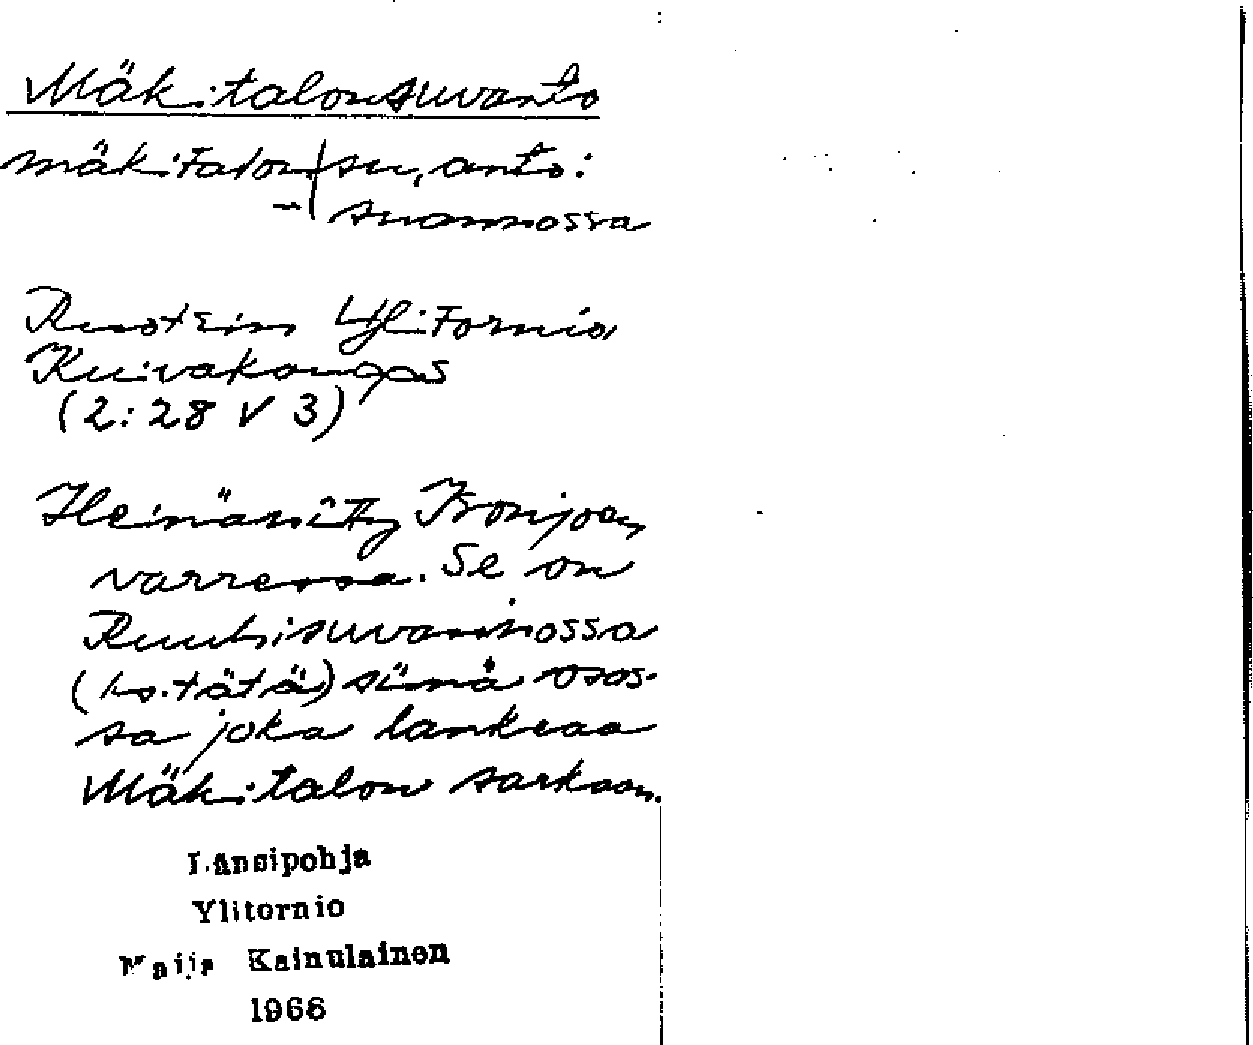 Mäkitalonsuvanto
mäkitalon|su̯anto:
-|suannossa
Ruotsin Ylitornio
Kuivakangas
(2:28 V 3)
Heinäniitty
varressa. Se on
Ruuhisuvannossa
(ks. tätä) siinä osos-
sa joka lankeaa
Mäkitalon sarkaan.
Länsipohja
Ylitornio
Maija Kainulainen
1966